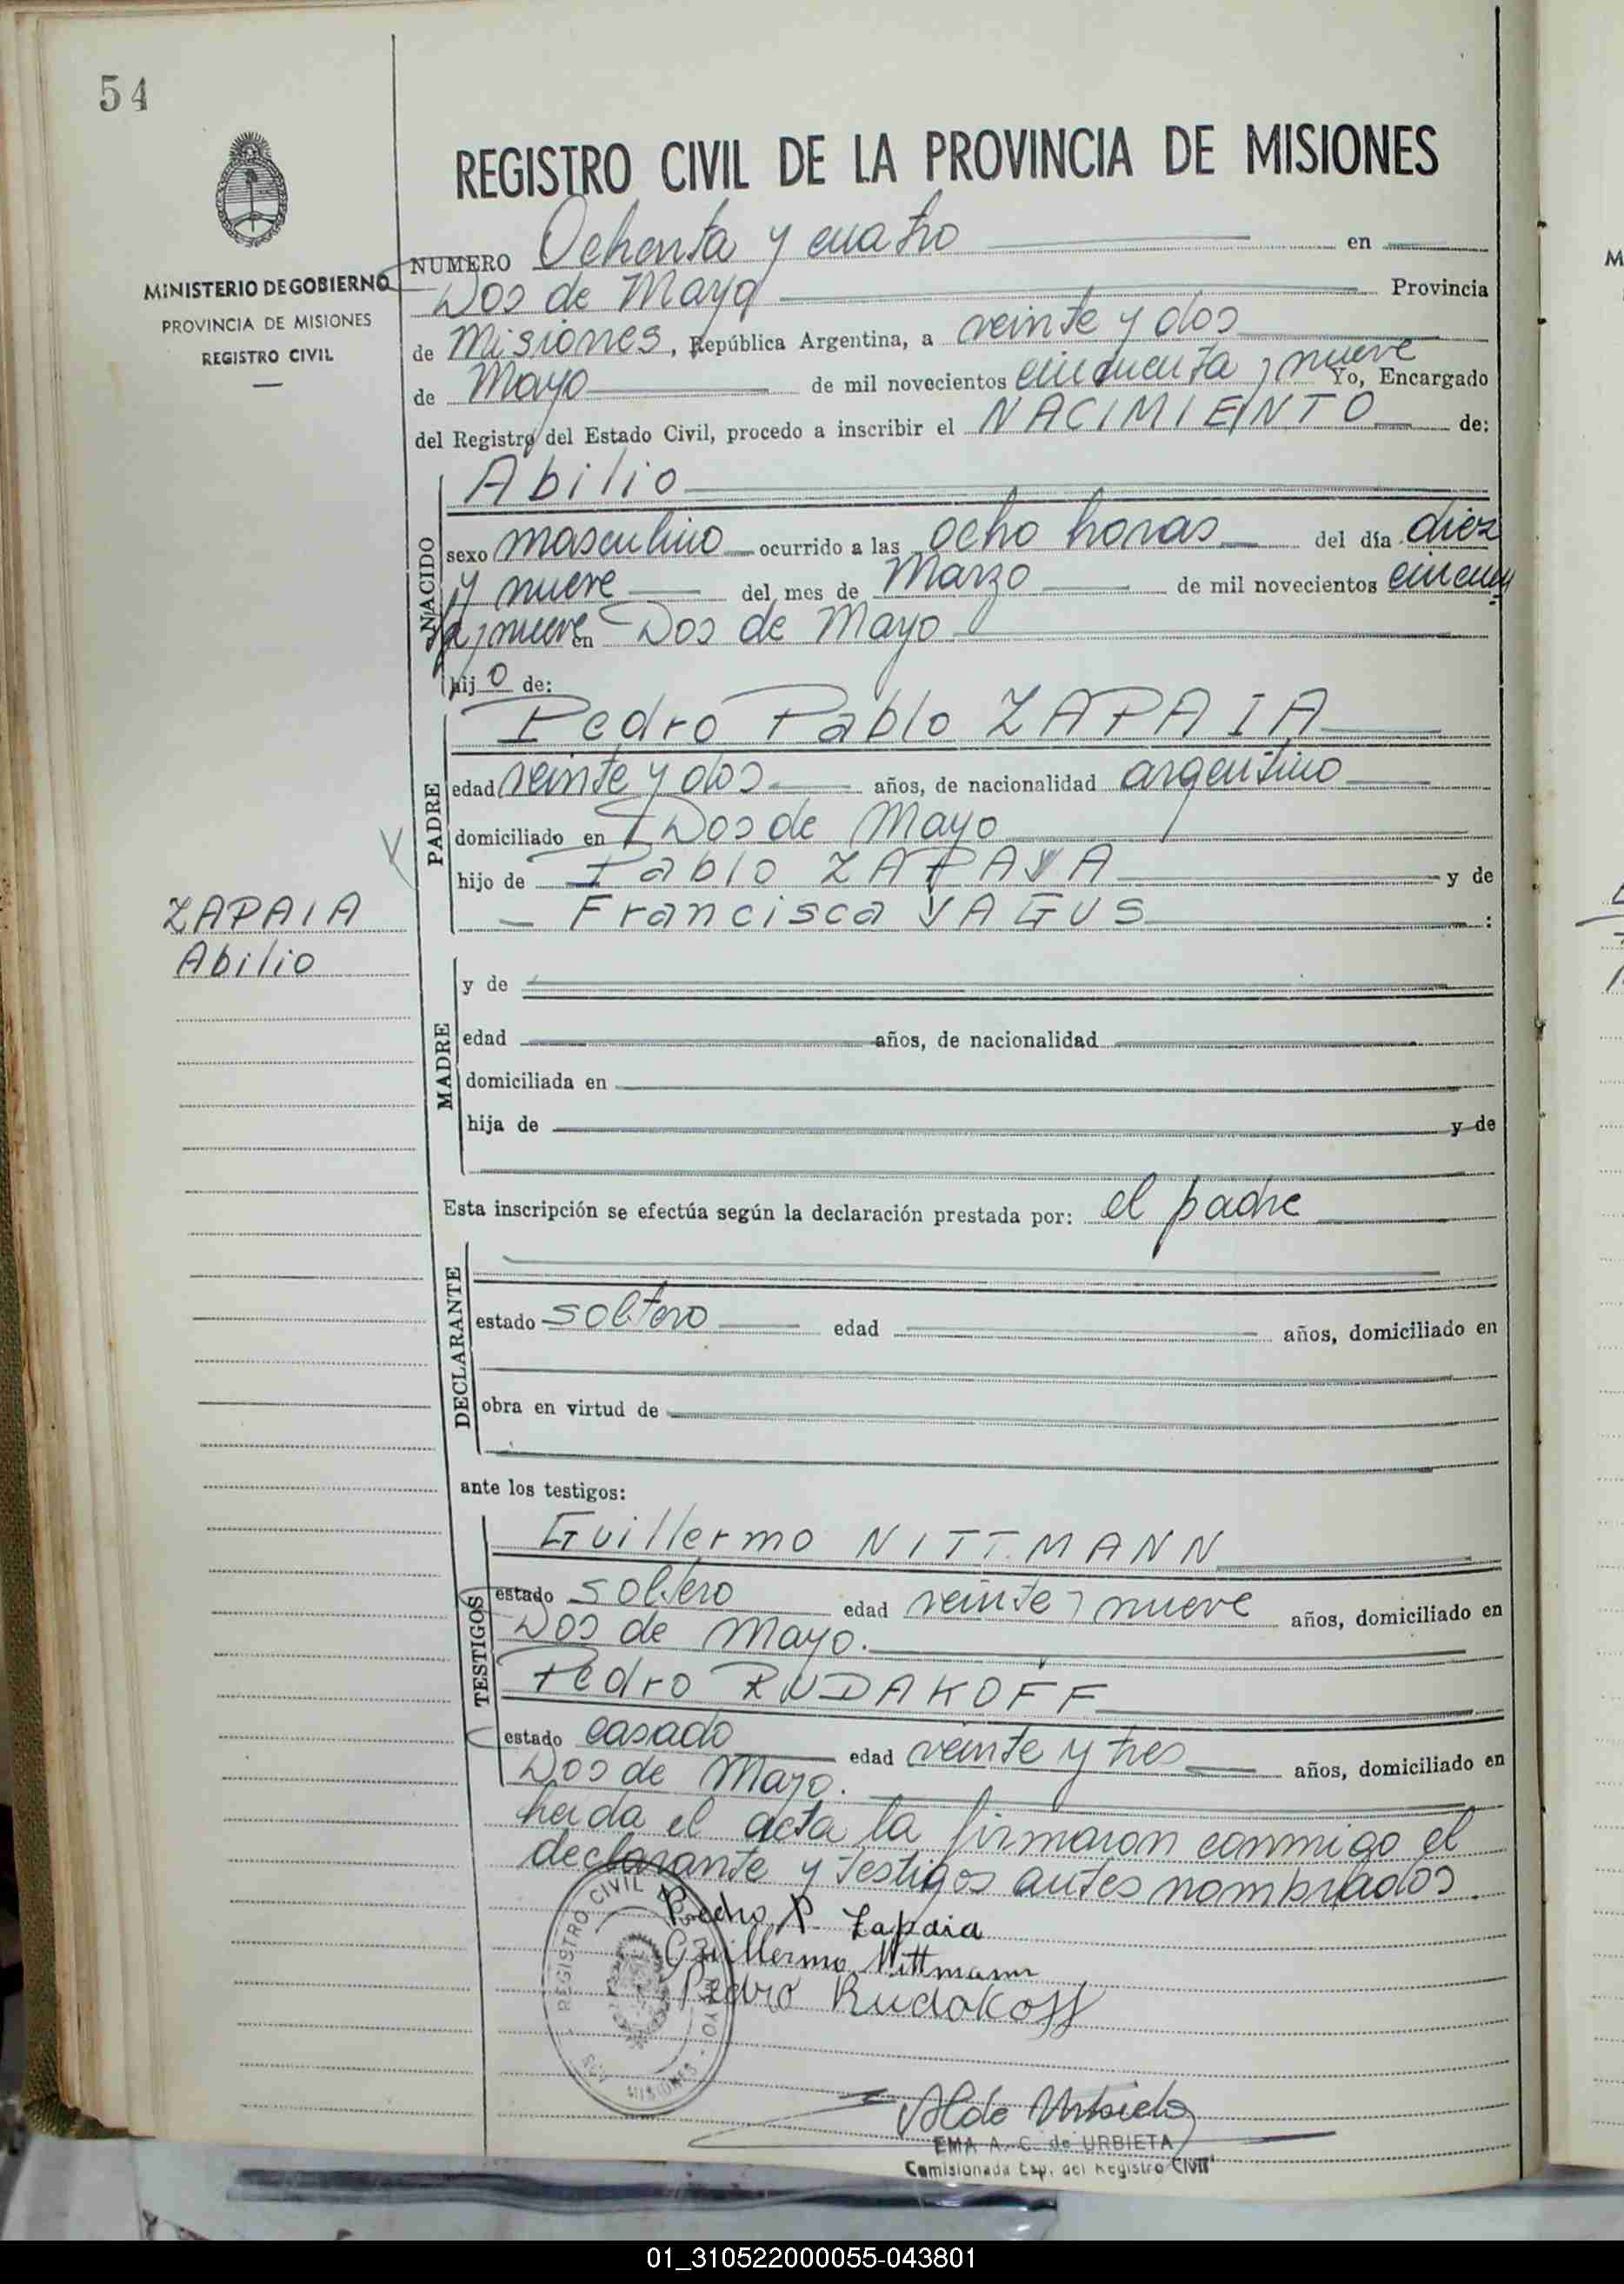 54
REGISTRO CIVIL DE LA PROVINCIA DE MISIONES
MINISTERIO DE GOBIERNO
PROVINCIA DE MISIONES
REGISTRO CIVIL
NUMERO Ochenta y cuatro en
Dos de Mayo Provincia
de Misiones, República Argentina, a veinte y dos
de Mayo de mil novecientos cincuenta y nueve Yo, Encargado
del Registro del Estado Civil, procedo a inscribir el NACIMIENTO de:
NACIDO
Abilio
sexo masculino ocurrido a las ocho horas del día diez
y nueve del mes de Marzo de mil novecientos cincuen
ta y nueve en Dos de Mayo
hij o de:
PADRE
Pedro Pablo ZAPAIA
edad veinte y dos años, de nacionalidad argentino
domiciliado en Dos de Mayo
hijo de Pablo ZAPAYA y de
Francisca YAGUS :
ZAPAIA
Abilio
MADRE
y de
edad años, de nacionalidad
domiciliada en
hija de y de
Esta inscripción se efectúa según la declaración prestada por: el padre
DECLARANTE
estado soltero edad años, domiciliado en
obra en virtud de
ante los testigos:
TESTIGOS
Guillermo NITTMANN
estado soltero edad veinte y nueve años, domiciliado en
Dos de Mayo.
Pedro RUDAKOFF
estado casado edad veinte y tres años, domiciliado en
Dos de Mayo.
leida el acta la firmaron conmigo el
declarante y testigos antes nombrados.
Pedro P. Zapaia
Guillermo Nittmann
Pedro Rudakoff
REGISTRO CIVIL DOS DE MAYO
MISIONES
EMA A. C. de URBIETA
Comisionada Esp. del Registro Civil
01_310522000055-043801